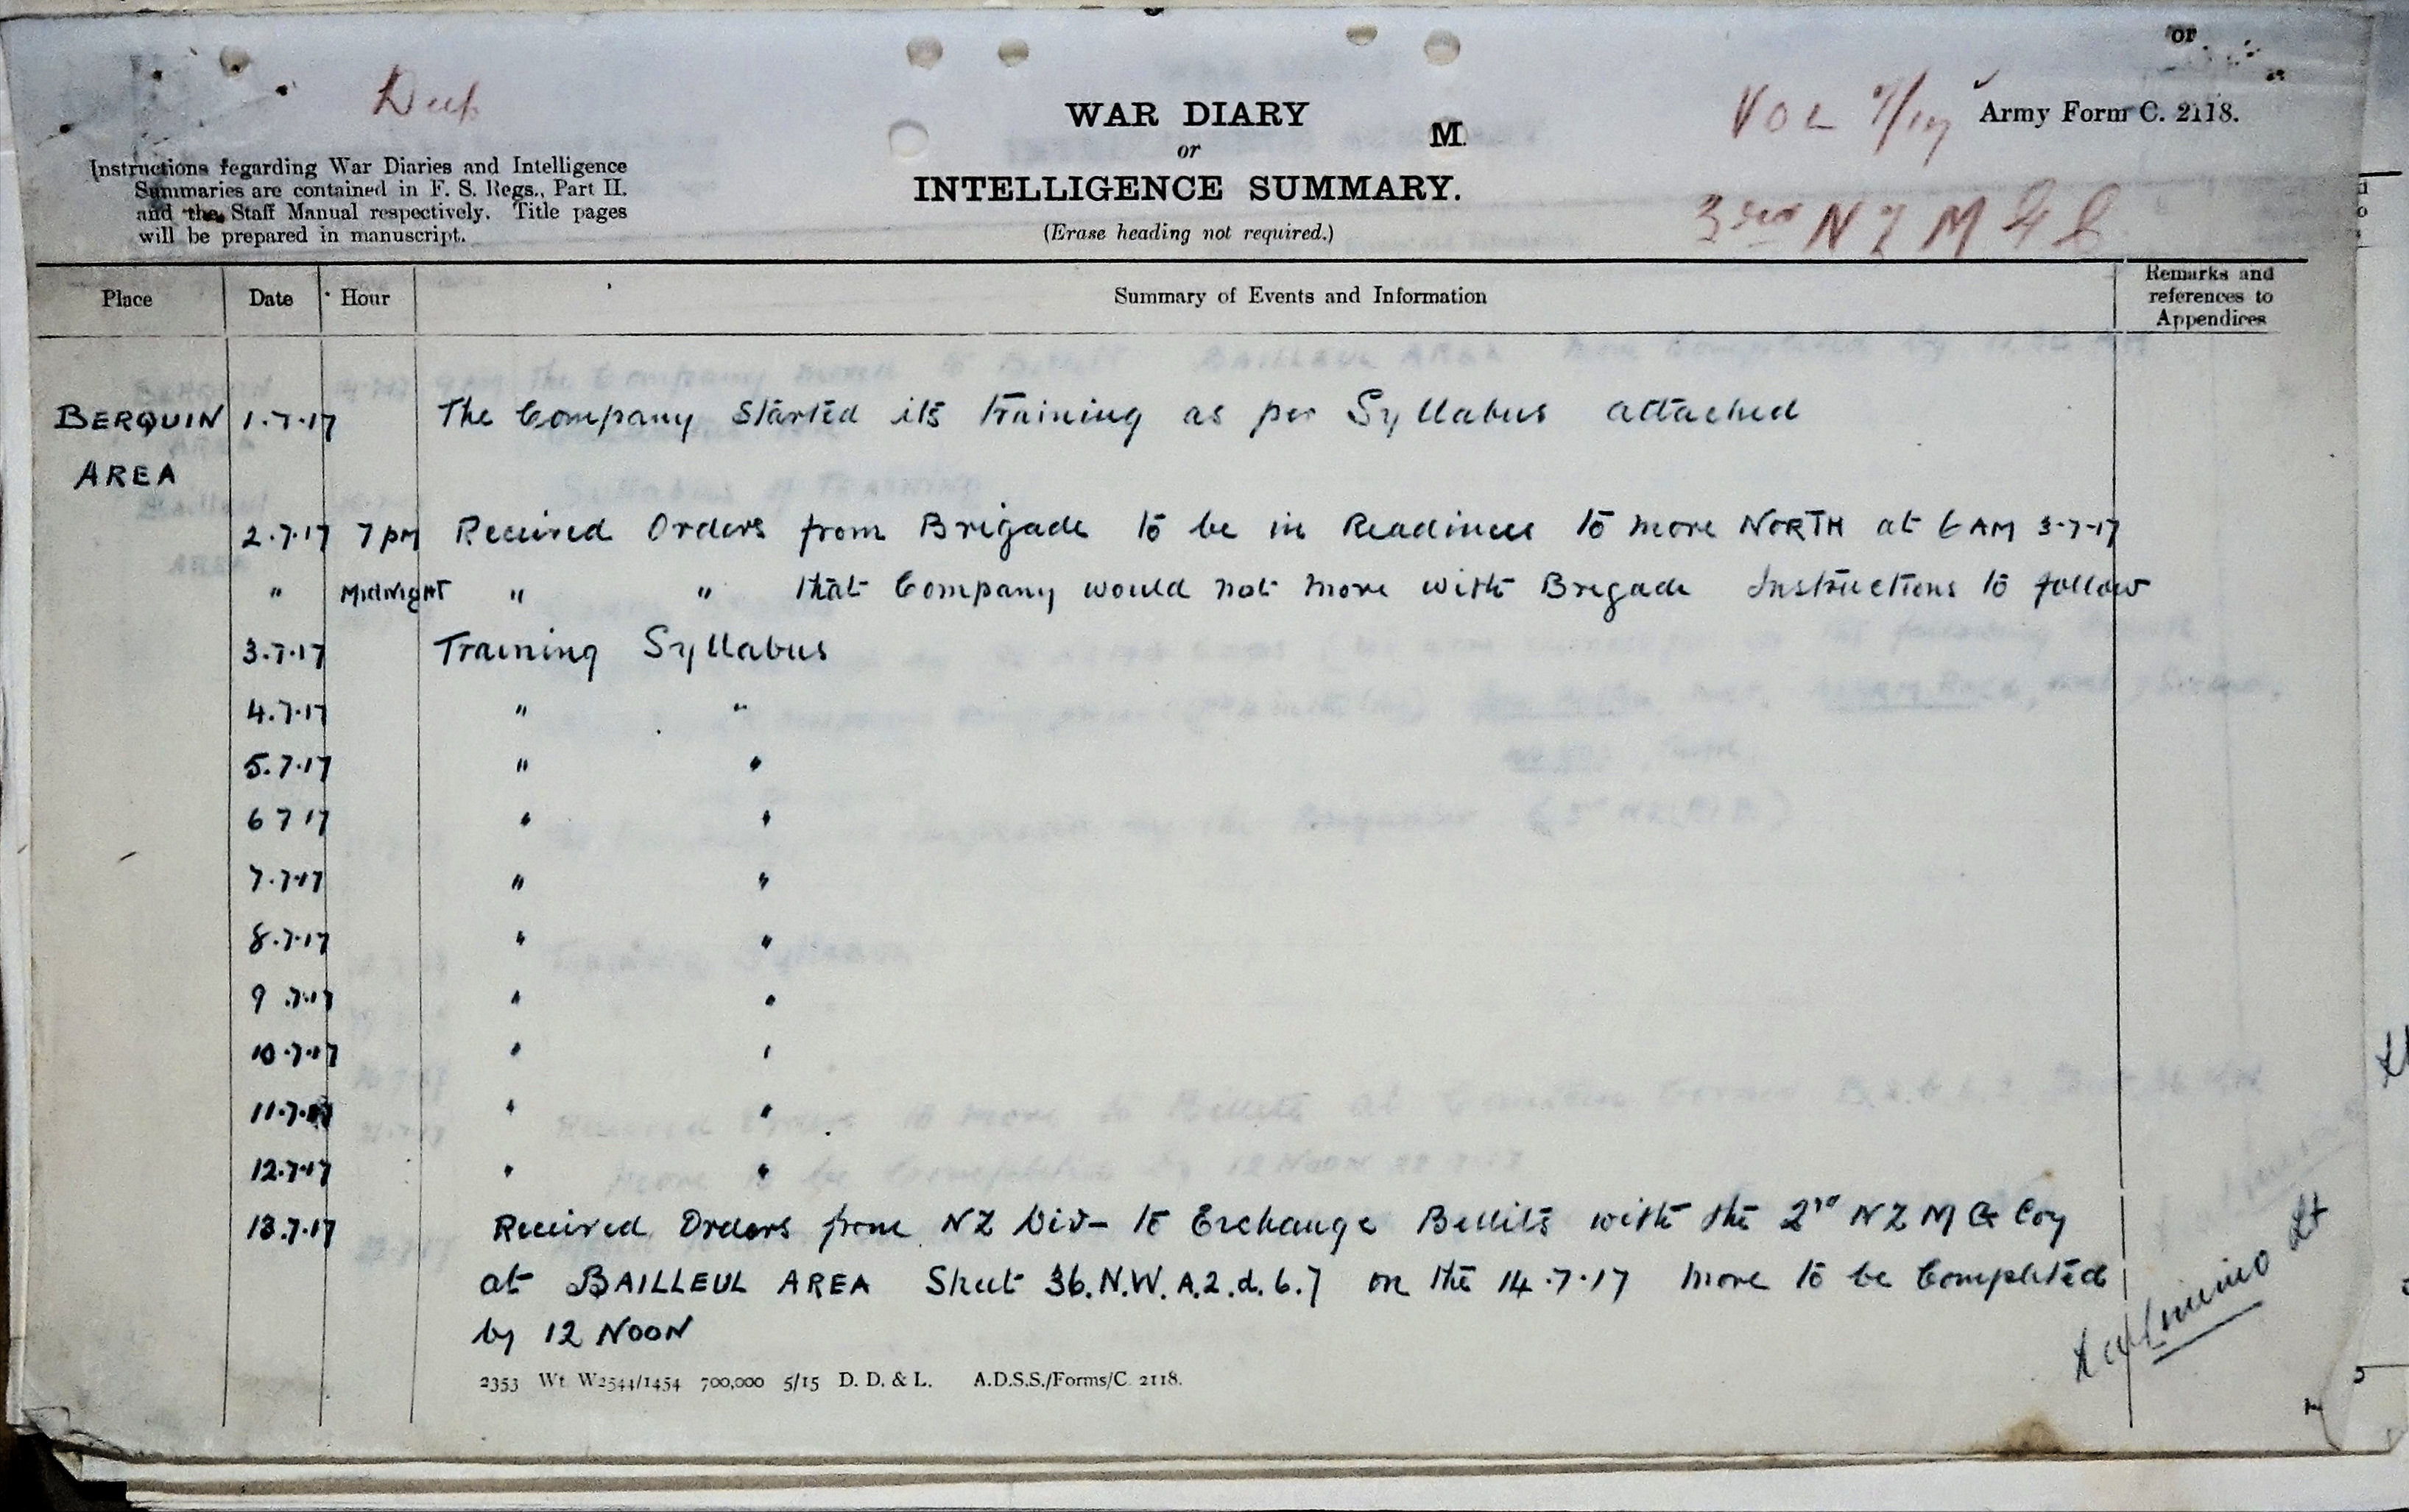 or
Dup
WAR DIARY
or
INTELLIGENCE SUMMARY.
(Erase heading not required.)
M.
VOL
Army Form C. 2118.
3 NZ M G C
Instructions regarding War Diaries and Intelligence
Summaries are contained in F. S. Regs., Part II.
and the Staff Manual respectively. Title pages
will be prepared in manuscript.
Place Date Hour Summary of Events and Information Remarks and references to Appendices
BERQUIN 1.7.17 The Company started its training as per Syllabus attached
AREA
2.7.17 7 pm Received Orders from Brigade to be in Readiness to move NORTH at 6 AM 3-7-17
" MIDNIGHT " " that Company would not move with Brigade Instructions to follow
3.7.17 Training Syllabus
4.7.17 " "
5.7.17 " "
6 7 17 " "
7.7.17 " "
8.7.17 " "
9.7.17 " "
10.7.17 " "
11.7.17 " "
12.7.17 " "
13.7.17 Received Orders from NZ Div- to Exchange Billits with the 2nd NZ M G Coy
at BAILLEUL AREA Sheet 36.N.W. A.2.d.6.7 on the 14.7.17 move to be Completed
by 12 NOON
Lt
2353 Wt W2544/1454 700,000 5/15 D. D. & L. A.D.S.S./Forms/C. 2118.